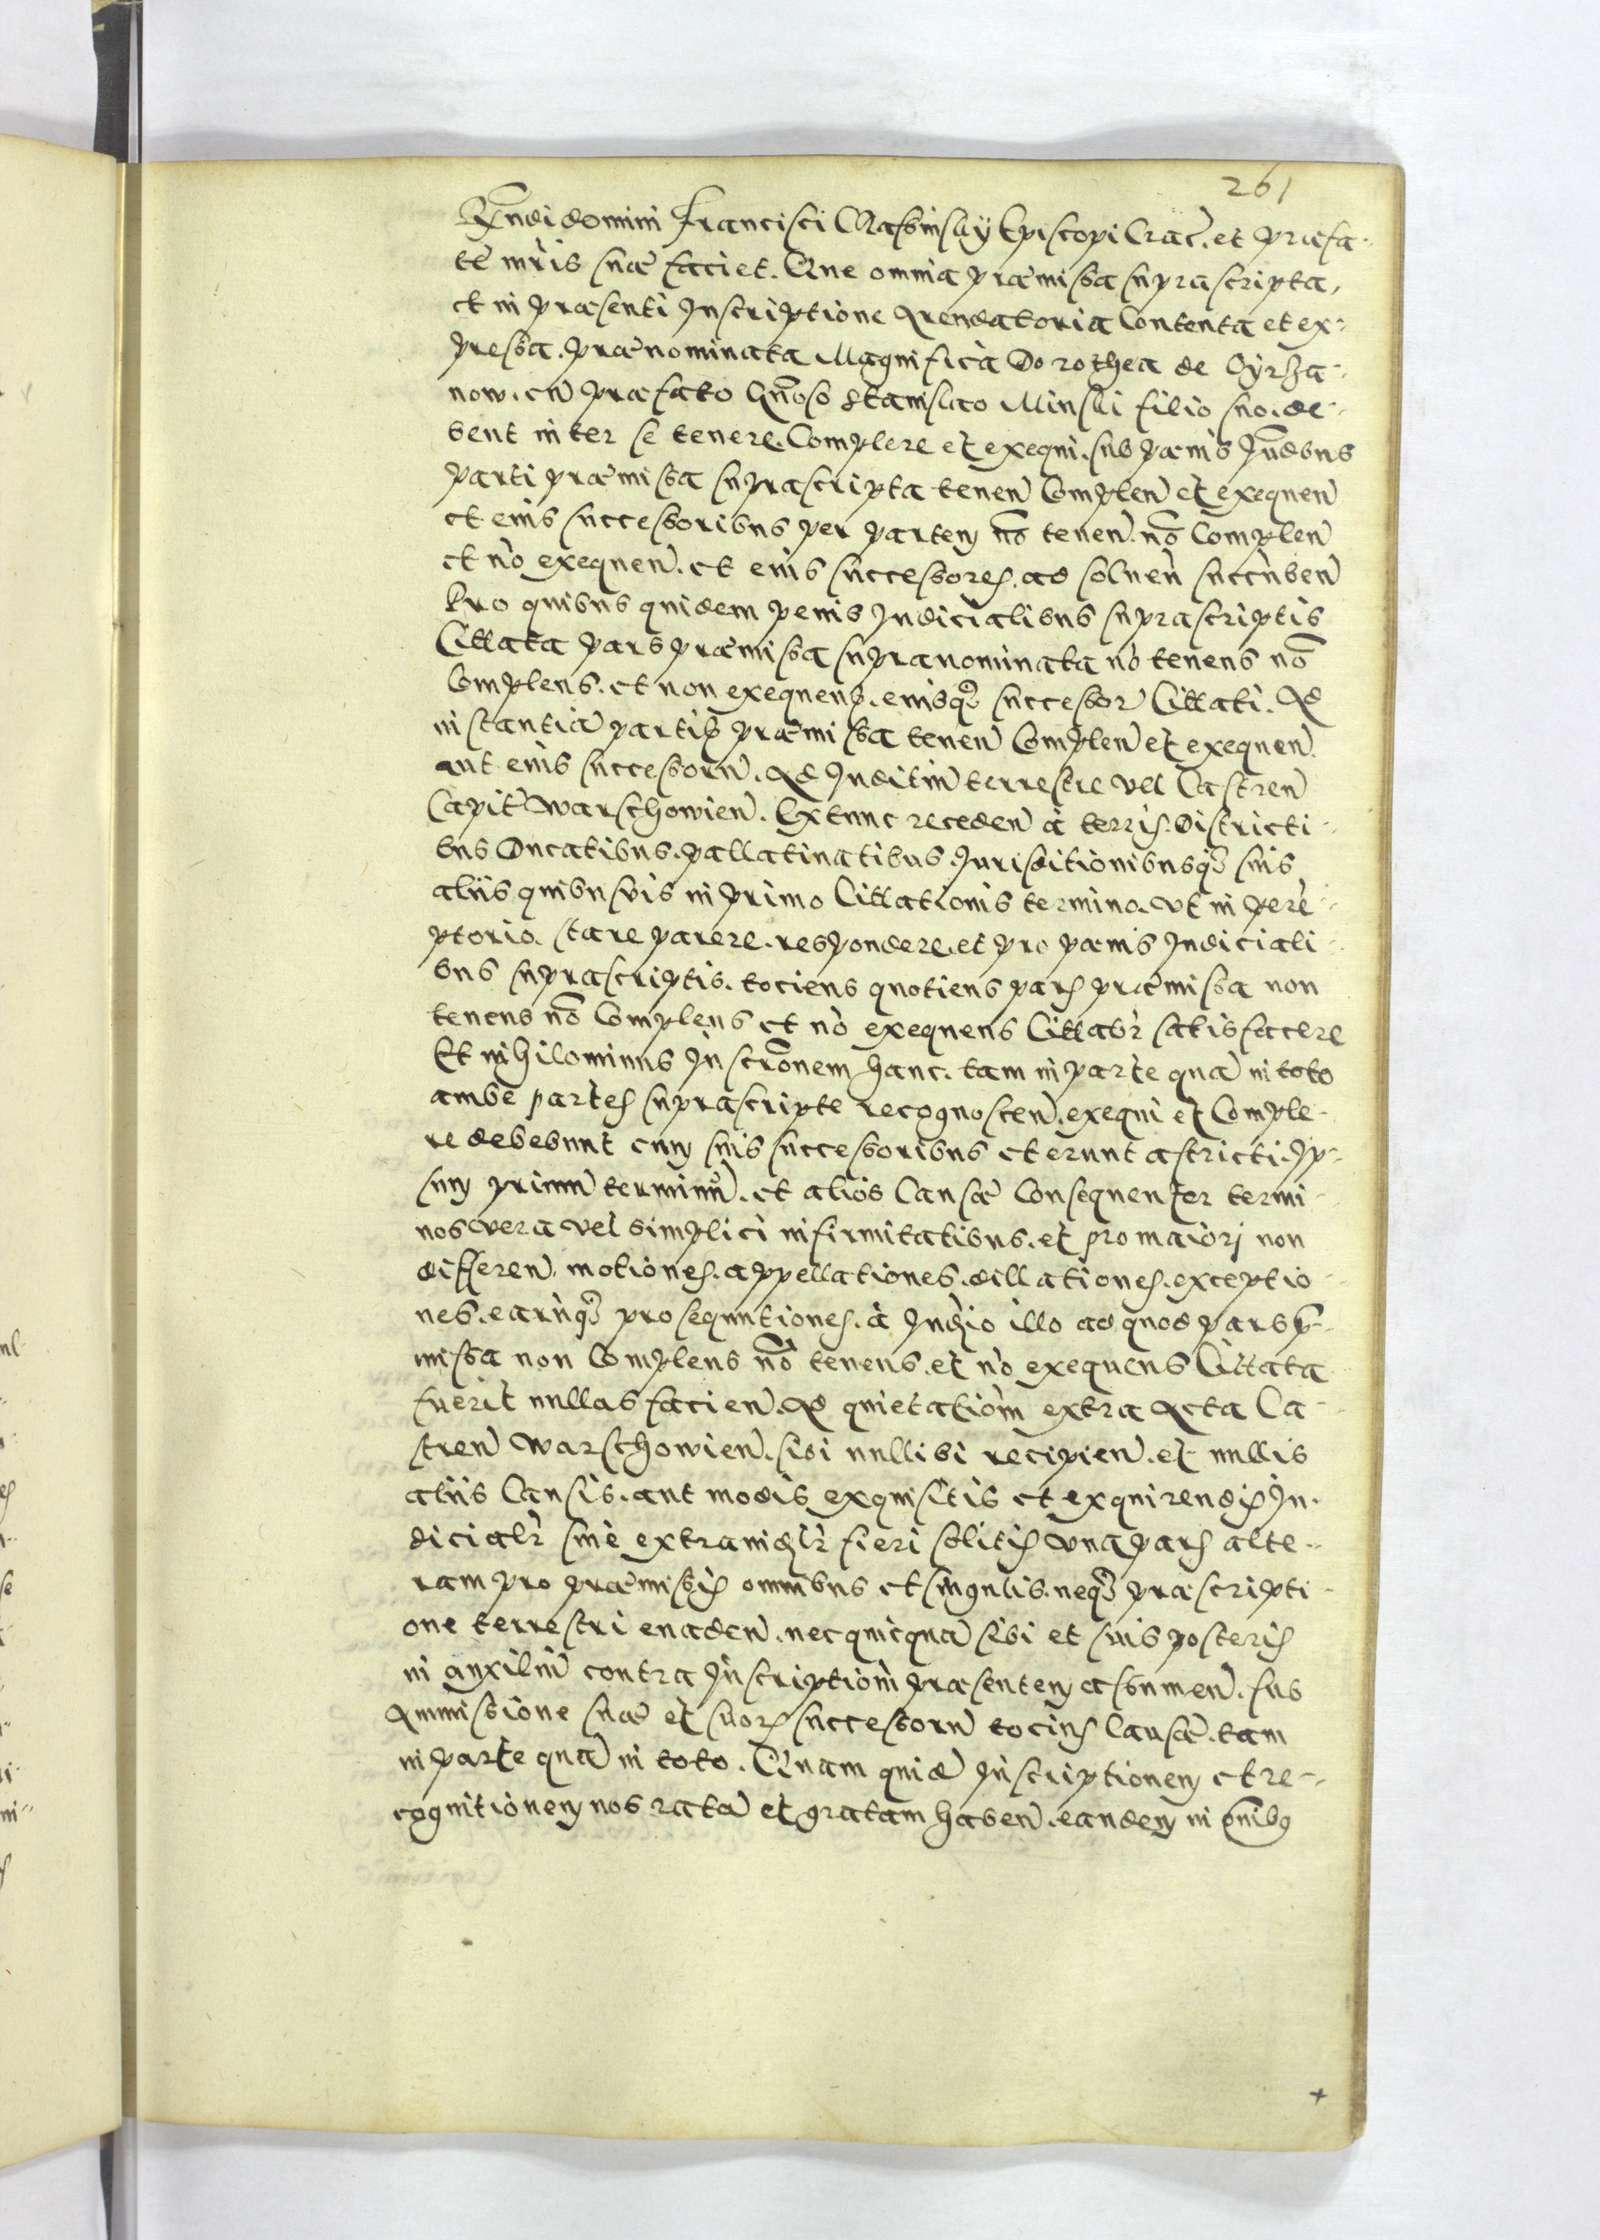 261
Rndi domini Francisci Krasinskÿ Episcopi Crac. et præfa-
te mris suæ faciet. Que omnia præmissa suprascripta,
et in præsenti Inscriptione Arendatoria Contenta et ex-
pressa. prænominata Magnifica Dorothea de Oyrza-
now. cu præfato Gnoso Stanislao Minski filio suo. de-
bent inter se tenere. Complere et exequi. sub pænis Iudbus
parti præmissa suprascripta tenen Complen et exequen
et eius successoribus per partem no tenen. no Complen
et no exequen. et eius successores. ad soluen succuben
Pro quibus quidem penis Iudicialibus suprascriptis
Cittata pars præmissa supranominata no tenens no
Complens. et non exequens. eiusq successor Cittati. Ad
instantia partis præmissa tenen Complen et exequen.
aut eius successoru. Ad Iuditiu terrestre vel Castren
Capit Warschowien. Extunc receden à terris. Districti-
bus Ducatibus. pallatinatibus. Jurisditionibusq suis
alÿs quibusuis in primo Cittationis termino. vt in pere-
ptorio. stare parere. respondere. et pro pænis Iudiciali-
bus suprascriptis. tociens quotiens pars præmissa non
tenens no Complens et no exequens Cittabr satisfacere
Et nihilominus Inscronem hanc. tam in parte qua in toto
ambe partes suprascripte recognoscen. exequi et Comple-
re debebunt cum suis successoribus et erunt astricti. Ip-
sum primu terminu. et alios Causæ Consequenter termi-
nos vera vel simplici infirmitatibus. et pro maiori non
differen. motiones. appellationes. dillationes. exceptio-
nes. earuq prosequutiones. à Iudio illo ad quod pars p-
missa non Complens no tenens. et no exequens Cittata
fuerit nullas facien. Ad quietatiom extra Acta Ca-
stren Warschowien. sibi nullibi recipien. et nullis
alÿs Causis. aut modis exquisitis et exquirendis Iu-
dicialr siue extraiudlr fieri solitis vna pars alte-
ram pro præmissis omnibus et singulis. neq præscripti-
one terrestri euaden. nec quicqua sibi et suis posteris
in auxiliu contra Inscriptiom præsentem assumen. sub
Ammissione suæ et suor successoru tocius Causæ. tam
in parte qua in toto. Quam quid Inscriptionem et re-
cognitionem nos rata et gratam haben. eandem in omibus